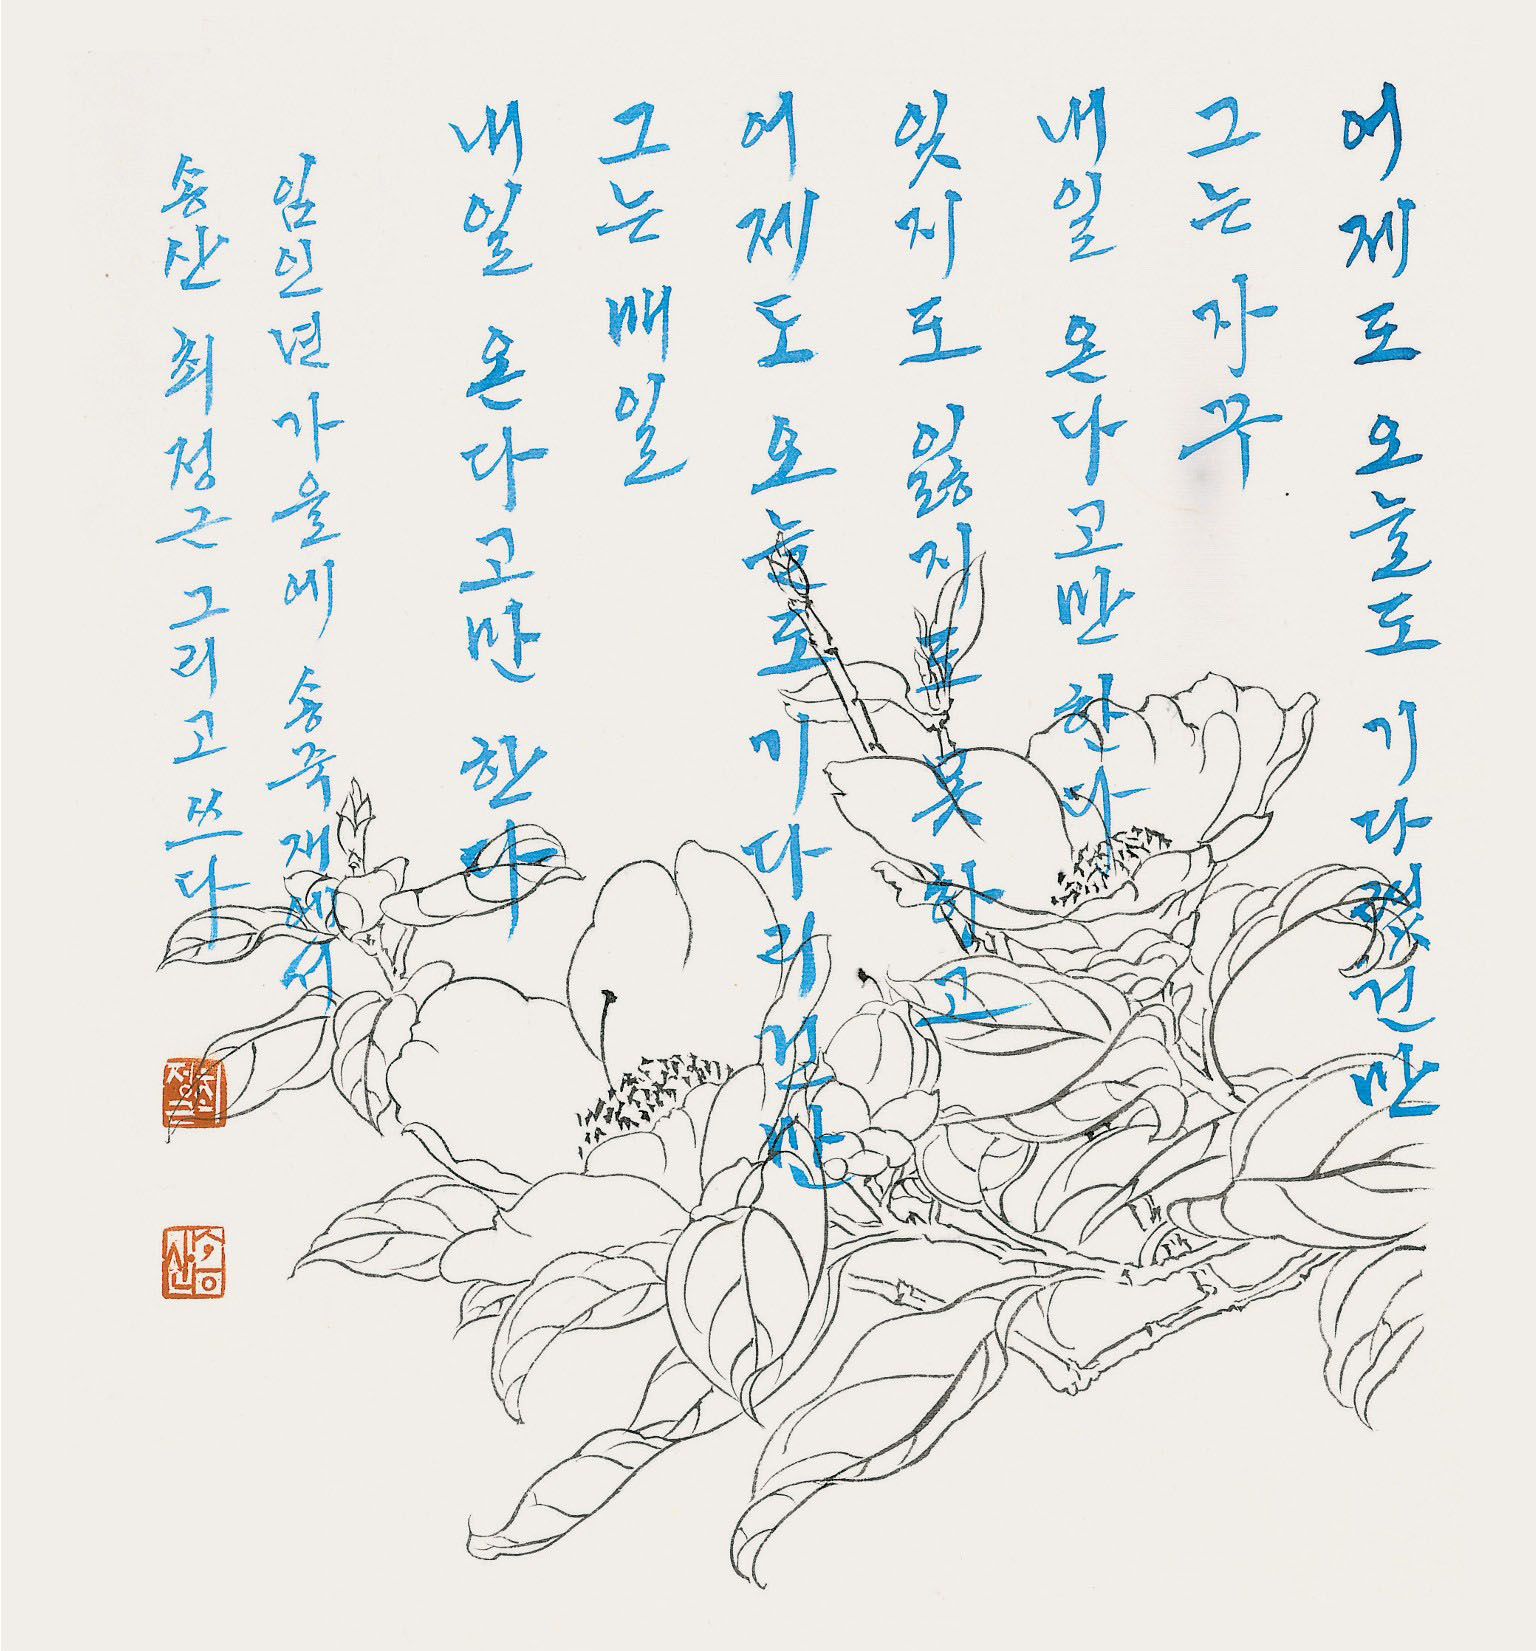 어제도 오늘도 기다렸건만
그는 자꾸
내일 온다고만 한다
잊지도 잃지도 못하고
어제도 오늘도 기다리건만
그는 매일
내일 온다고만 한다
임인년 가을에 송죽재에서
송산 최정근 그리고 쓰다
최정근
송산